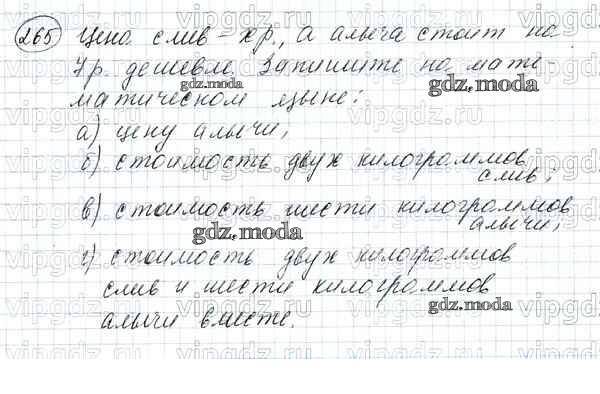 265 Цена слив - х р., а алыча стоит на
7 р. дешевле. Запишите на мате-
матическом языке:
а) цену алычи;
б) стоимость двух килограммов
слив;
в) стоимость шести килограммов
алычи;
г) стоимость двух килограммов
слив и шести килограммов
алычи вместе.
gdz.moda
gdz.moda
gdz.moda
gdz.moda
vipgdz.ru